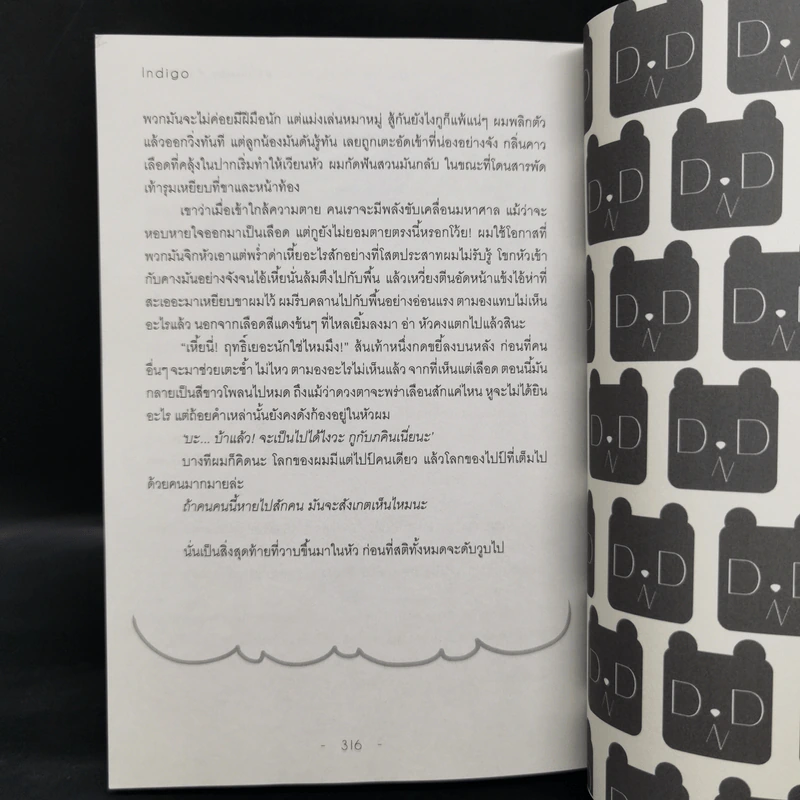 indigo
พวกมันจะไม่ค่อยมีฝีมือนัก แต่แม่งเล่นหมาหมู่ สู้กันยังไงกูก็แพ้แน่ๆ ผมพลิกตัว
แล้วออกวิ่งทันที แต่ลูกน้องมันดันรู้ทัน เลยถูกเตะอัดเข้าที่น่องอย่างจัง กลิ่นคาว
เลือดที่คลุ้งในปากเริ่มทำให้เวียนหัว ผมกัดฟันสวนมันกลับ ในขณะที่โดนสารพัด
เท้ารุมเหยียบที่ขาและหน้าท้อง
เขาว่าเมื่อเข้าใกล้ความตาย คนเราจะมีพลังขับเคลื่อนมหาศาล แม้ว่าจะ
หอบหายใจออกมาเป็นเลือด แต่กูยังไม่ยอมตายตรงนี้หรอกโว้ย! ผมใช้โอกาสที่
พวกมันจิกหัวเอาแต่พร่ำด่าเหี้ยอะไรสักอย่างที่โสตประสาทผมไม่รับรู้ โขกหัวเข้า
กับคางมันอย่างจังจนไอ้เหี้ยนั่นล้มตึงไปกับพื้น แล้วเหวี่ยงตีนอัดหน้าแข้งไอ้ห่าที่
สะเออะมาเหยียบขาผมไว้ ผมรีบคลานไปกับพื้นอย่างอ่อนแรง ตามองแทบไม่เห็น
อะไรแล้ว นอกจากเลือดสีแดงข้นๆ ที่ไหลเยิ้มลงมา อ่า หัวคงแตกไปแล้วสินะ
“เหี้ยนี่! ฤทธิ์เยอะนักใช่ไหมมึง!” ส้นเท้าหนึ่งกดขยี้ลงบนหลัง ก่อนที่คน
อื่นๆ จะมาช่วยเตะซ้ำ ไม่ไหว ตามองอะไรไม่เห็นแล้ว จากที่เห็นแต่เลือด ตอนนี้มัน
กลายเป็นสีขาวโพลนไปหมด ถึงแม้ว่าดวงตาจะพร่าเลือนสักแค่ไหน หูจะไม่ได้ยิน
อะไร แต่ถ้อยคำเหล่านั้นยังคงดังก้องอยู่ในหัวผม
‘บะ... บ้าแล้ว! จะเป็นไปได้ไงวะ กูกับภคินเนี่ยนะ’
บางทีผมก็คิดนะ โลกของผมมีแต่ไปป์คนเดียว แล้วโลกของไปป์ที่เต็มไป
ด้วยคนมากมายล่ะ
ถ้าคนคนนี้หายไปสักคน มันจะสังเกตเห็นไหมนะ
นั่นเป็นสิ่งสุดท้ายที่วาบขึ้นมาในหัว ก่อนที่สติทั้งหมดจะดับวูบไป
- 316 -